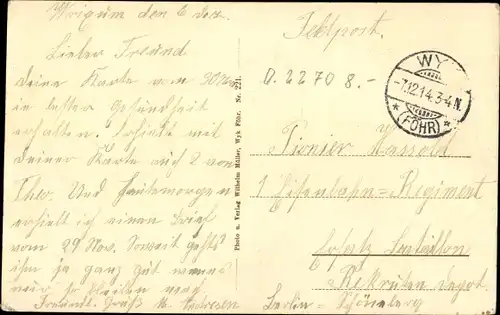 Wrixum den 6 Dez.
Lieber Freund
Deine Karte vom 30/11
in bester Gesundheit
erhalten. Erhielt mit
deiner Karte auch 2 von
Theo. Und heute morgen
erhielt ich einen Brief
vom 29 Nov. Soweit geht's
ihm ja ganz gut wenns
nur so bleiben mag
Freundl. Gruß
Photo u. Verlag Wilhelm Müller, Wyk Föhr, Nr. 221.
Feldpost.
D. 2270 8.-
WYK
7.12.14. 3-4 N.
* (FÖHR) *
Pionier
1 Eisenbahn=Regiment
Ersatz Bataillon
Rekruten Depot.
Berlin=Schöneberg